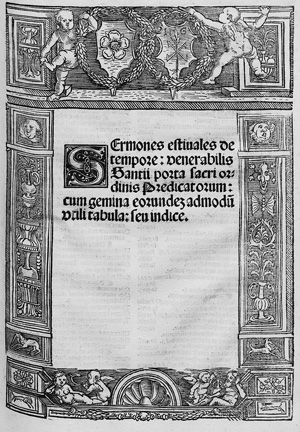 SErmones estiuales de
tempore: venerabilis
Santii porta sacri or-
dinis Predicatorum:
cum gemina eorundez admodū
vtili tabula: seu indice.